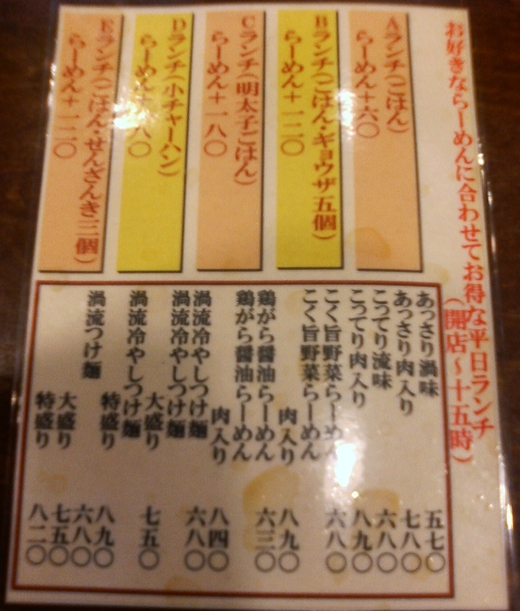 お好きならーめんに合わせてお得な平日ランチ
（開店～十五時）
Aランチ（ごはん）
らーめん＋六〇
Bランチ（ごはん・ギョウザ五個）
らーめん＋一二〇
Cランチ（明太子ごはん）
らーめん＋一八〇
Dランチ（小チャーハン）
らーめん＋八〇
Eランチ（ごはん・せんざんき三個）
らーめん＋一二〇
あっさり渦味 五七〇
あっさり肉入り 七八〇
こってり流味 六八〇
こってり肉入り 八九〇
こく旨野菜らーめん 六八〇
こく旨野菜らーめん
肉入り 八九〇
鶏がら醤油らーめん 六三〇
鶏がら醤油らーめん
肉入り 八四〇
渦流冷やしつけ麺 六八〇
渦流冷やしつけ麺
大盛り 七五〇
渦流冷やしつけ麺
特盛り 八九〇
渦流つけ麺 六八〇
大盛り 七五〇
特盛り 八二〇